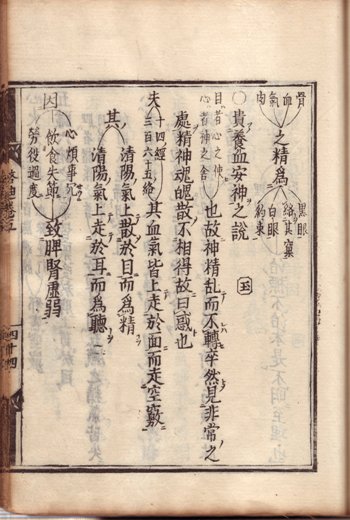 骨
血
氣
肉
之精爲
黒眼
絡其窠
白眼
約束
〇貴養血安神之說 玉
目者心之使
心者神之舍
也故神精乱而不轉卒然見非常之
處精神魂魄散不相得故曰惑也
夫
十四經
三百六十五絡
其血氣皆上走於面而走空竅
其
清陽氣上散於目而爲精
清陽氣上走於耳而爲聽
因
心煩事冗
飲食失節
勞役過度
致脾腎虛弱